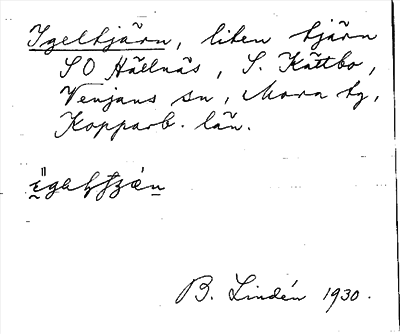 Igeltjärn, liten tjärn
SO Hällnäs, S. Kättbo,
Venjans sn, Mora tg,
Kopparb. län.
B. Lindén 1930.